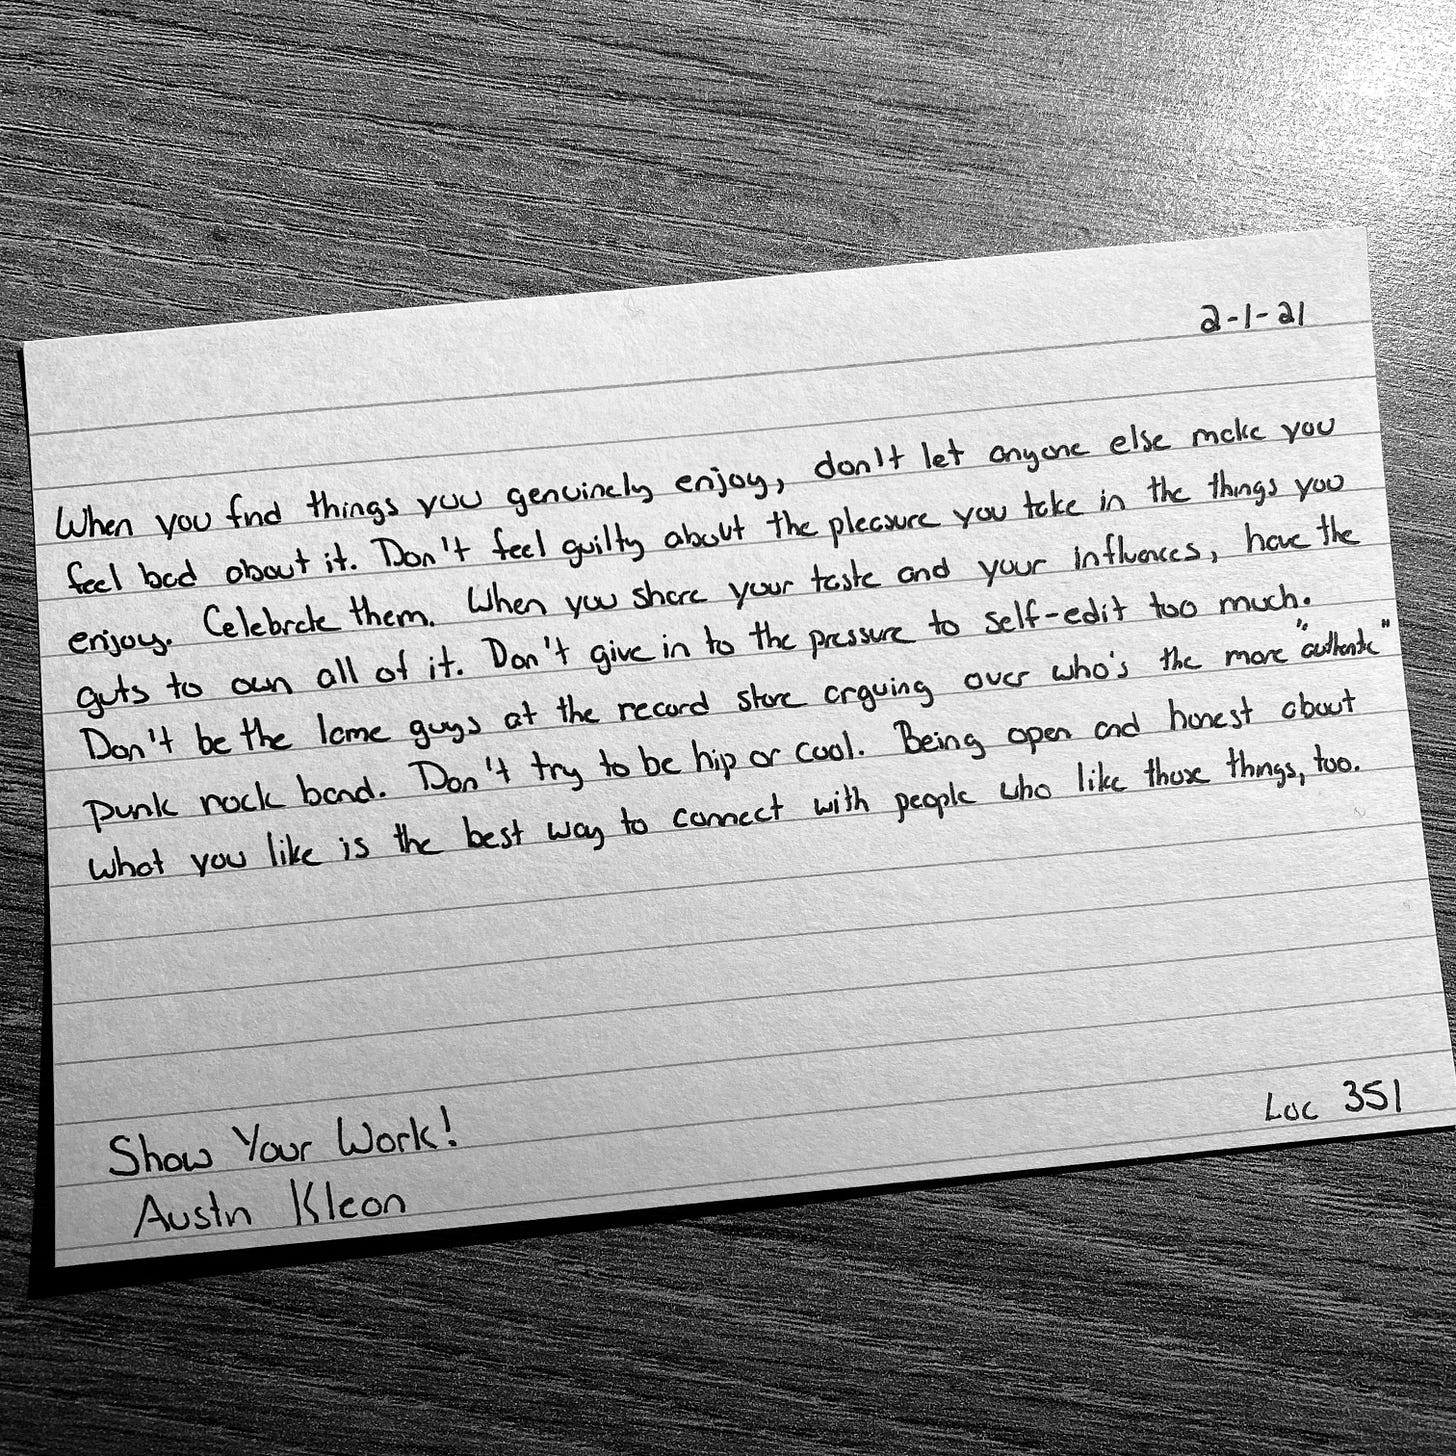 2-1-21
When you find things you genuinely enjoy, don't let anyone else make you
feel bad about it. Don't feel guilty about the pleasure you take in the things you
enjoy. Celebrate them. When you share your taste and your influences, have the
guts to own all of it. Don't give in to the pressure to self-edit too much.
Don't be the lame guys at the record store arguing over who's the more "authentic"
punk rock band. Don't try to be hip or cool. Being open and honest about
what you like is the best way to connect with people who like those things, too.
Loc 351
Show Your Work!
Austin Kleon